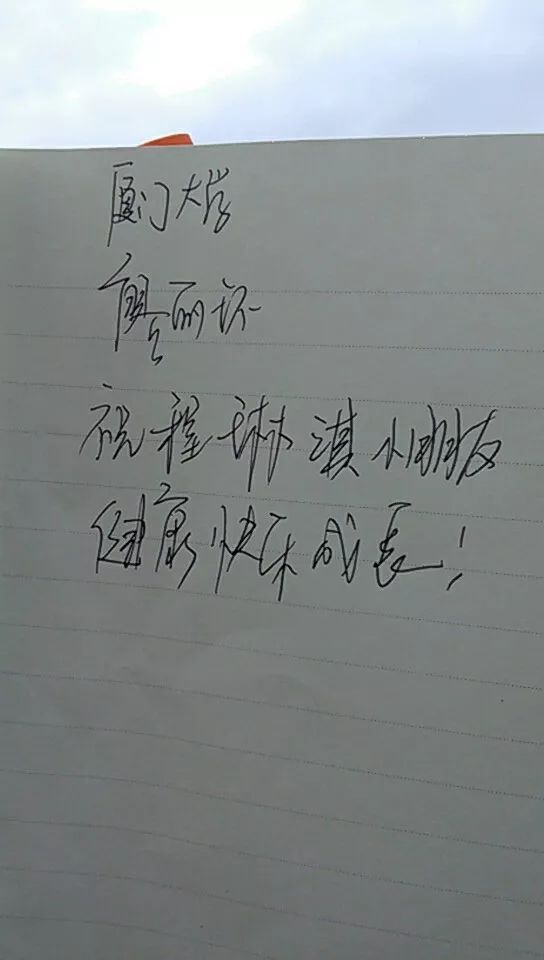 厦门大学
廖丽环
祝程琳淇小朋友
健康快乐成长!